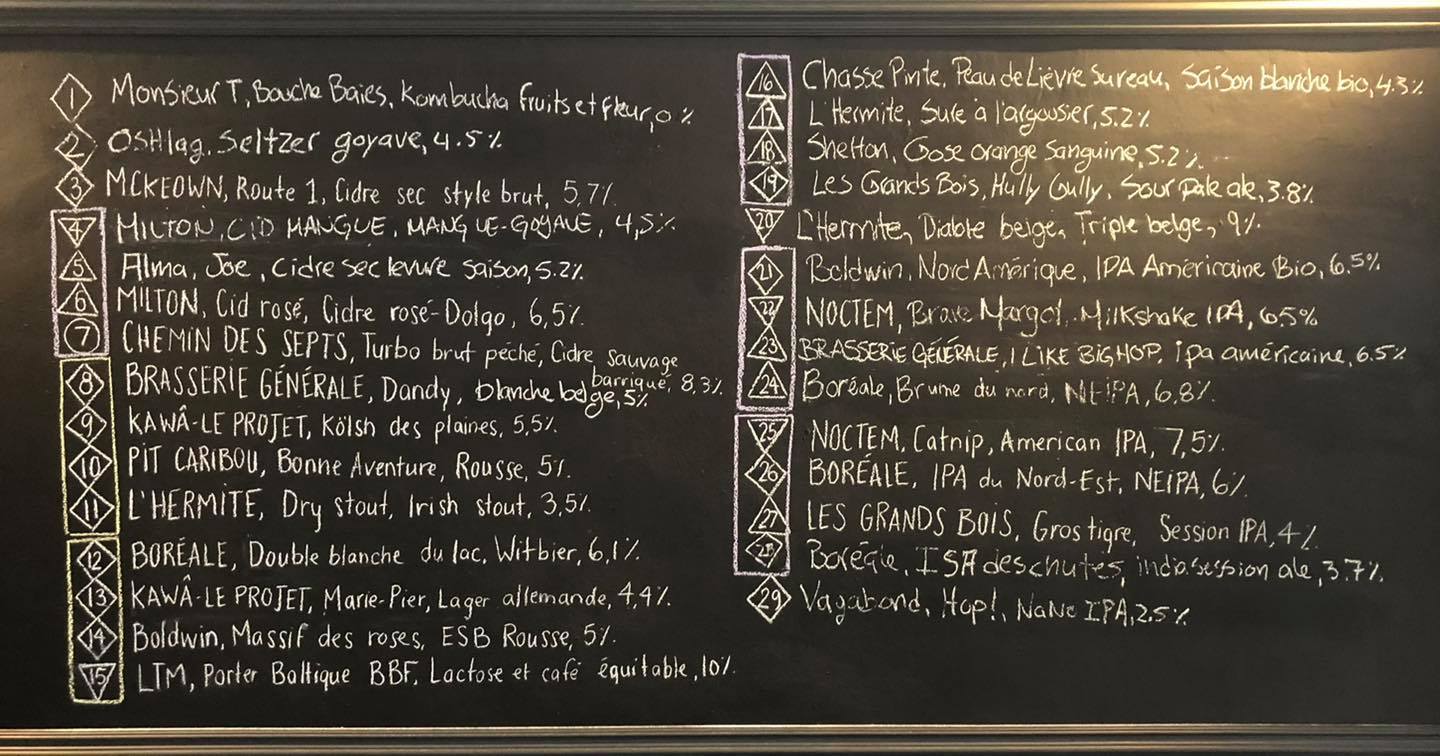 1 Monsieur T, Bouche Baies, Kombucha fruits et fleur, 0 %
2 OSHlag, Seltzer goyave, 4.5 %
3 MCKEOWN, Route 1, Cidre sec style brut, 5,7%
4 MILTON, CID MANGUE, MANGUE-GOYAVE, 4,5%
5 Alma, Joe, Cidre sec levure saison, 5.2%
6 MILTON, Cid rosé, Cidre rosé-Dolgo, 6,5%
7 CHEMIN DES SEPTS, Turbo brut pêché, Cidre sauvage
barrique, 8,3%
8 BRASSERIE GÉNÉRALE, Dandy, blanche belge, 5%
9 KAWÂ-LE PROJET, Kölsh des plaines, 5,5%
10 PIT CARIBOU, Bonne Aventure, Rousse, 5%
11 L'HERMITE, Dry stout, Irish stout, 3,5%
12 BORÉALE, Double blanche du lac, Witbier, 6,1%
13 KAWÂ-LE PROJET, Marie-Pier, Lager allemande, 4,4%
14 Boldwin, Massif des roses, ESB Rousse, 5%
15 LTM, Porter Baltique BBF, Lactose et café équitable, 10%
16 Chasse Pinte, Peau de Lièvre Sureau, Saison blanche bio, 4.3%
17 L'Hermite, Sure à l'argousier, 5.2%
18 Shelton, Gose orange Sanguine, 5.2%
19 Les Grands Bois, Hully Gully, Sour pale ale, 3.8%
20 L'Hermite, Diable belge, Triple belge, 9%
21 Boldwin, Nord Amérique, IPA Américaine Bio, 6.5%
22 NOCTEM, Brave Margot, Milkshake IPA, 6.5%
23 BRASSERIE GÉNÉRALE, I LIKE BIG HOP, ipa américaine, 6.5%
24 Boréale, Brume du nord, NEIPA, 6.8%
25 NOCTEM, Catnip, American IPA, 7,5%
26 BORÉALE, IPA du Nord-Est, NEIPA, 6%
27 LES GRANDS BOIS, Gros tigre, Session IPA, 4%
28 Boréale, ISA des chutes, india session ale, 3.7%
29 Vagabond, Hop!, NaNo IPA, 2.5%